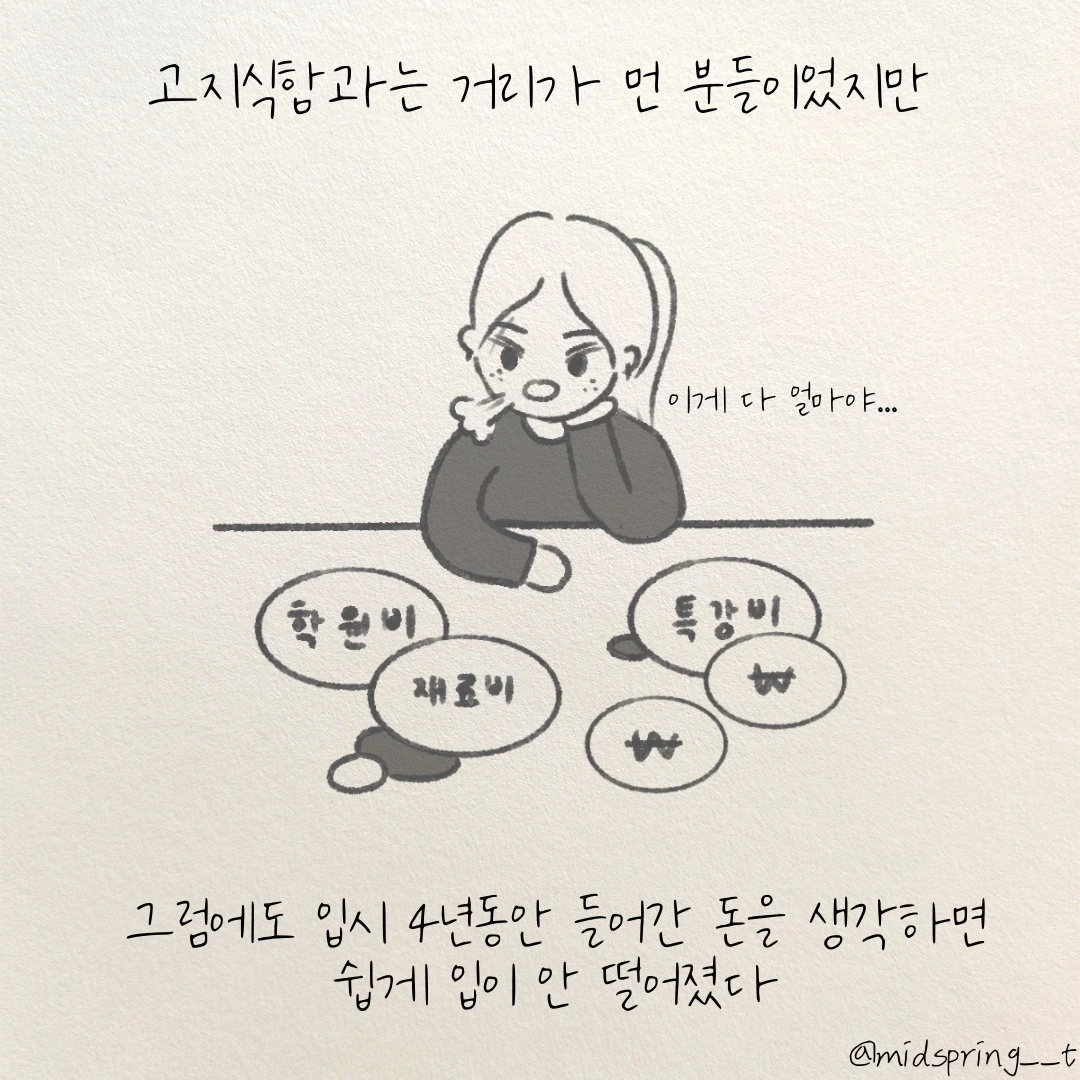 고지식함과는 거리가 먼 분들이었지만
이게 다 얼마야...
학원비
특강비
재료비
₩
₩
그럼에도 입시 4년동안 들어간 돈을 생각하면
쉽게 입이 안 떨어졌다
@midspring__t